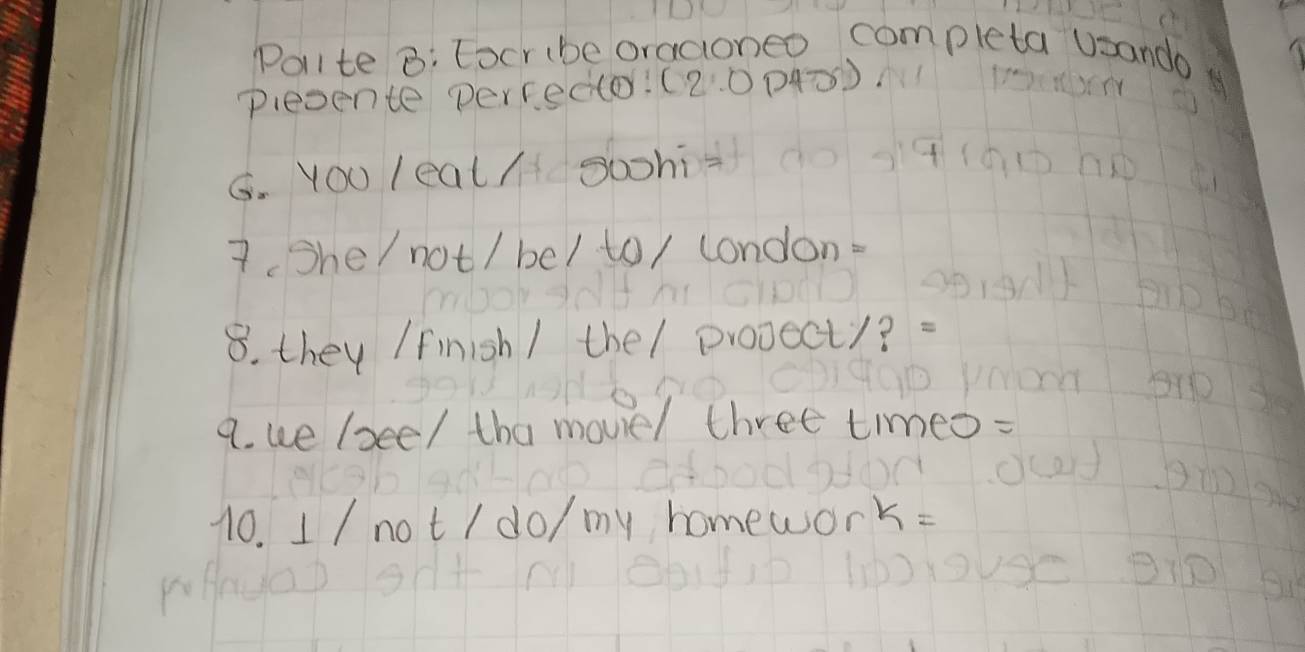 Parte B: Escribe oraciones completa usando
presente perfecto: (2.0 ptos).
6. you / eat / sushi =
7. She / not / be / to / London =
8. they / finish / the / project / ? =
9. we / see / tha movie / three times =
10. I / not / do / my homework =